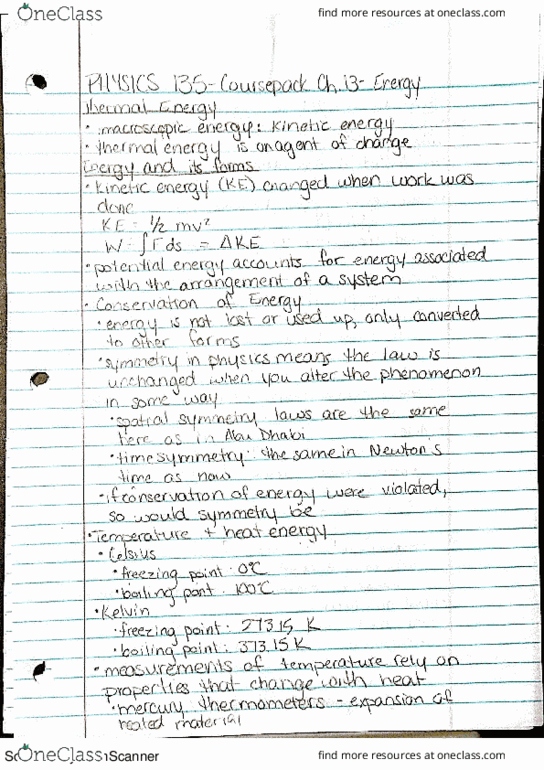 OneClass find more resources at oneclass.com
PHYSICS 135- Coursepack Ch. 13- Energy
Thermal Energy
• macroscopic energy: Kinetic energy
• thermal energy is an agent of change
Energy and its forms
• Kinetic energy (KE) changed when work was
done
KE = 1/2 mv²
W = ∫F ds = ΔKE
• potential energy accounts for energy associated
with the arrangement of a system
• Conservation of Energy
• energy is not lost or used up, only converted
to other forms
• symmetry in physics means the law is
unchanged when you alter the phenomenon
in some way
• spatial symmetry laws are the same
here as in Abu Dhabi
• time symmetry: the same in Newton's
time as now
• if conservation of energy were violated,
so would symmetry be
• Temperature + heat energy
• Celsius
• freezing point: 0°C
• boiling point: 100°C
• Kelvin
• freezing point: 273.15 K
• boiling point: 373.15 K
• measurements of temperature rely on
properties that change with heat
• mercury thermometers - expansion of
heated material
OneClass Scanner find more resources at oneclass.com